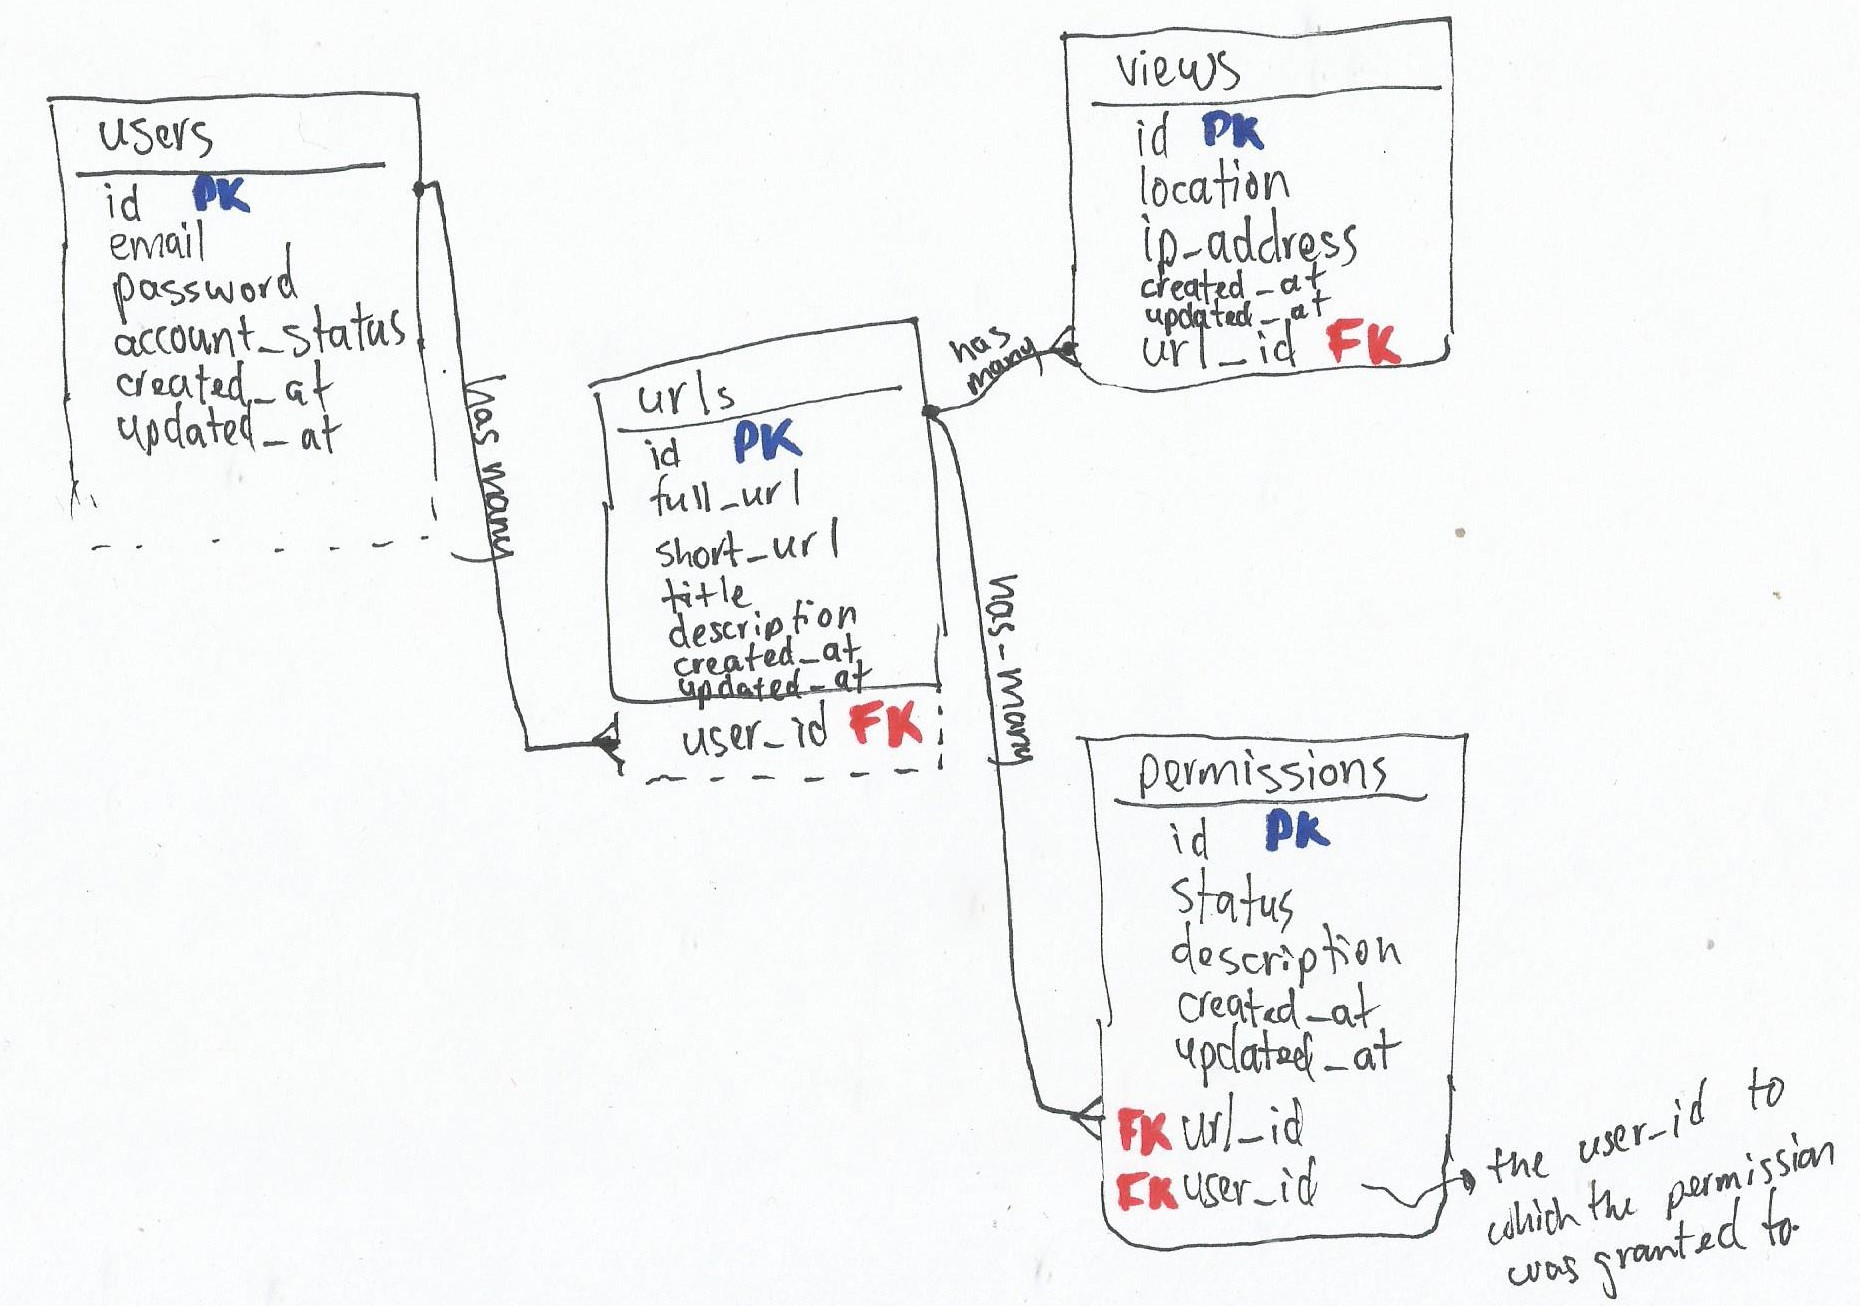 users
id PK
email
password
account_status
created_at
updated_at
has many
urls
id PK
full_url
short_url
title
description
created_at
updated_at
user_id FK
has
many
views
id PK
location
ip_address
created_at
updated_at
url_id FK
has-many
permissions
id PK
status
description
created_at
updated_at
FK url_id
FK user_id
the user_id to
which the permission
was granted to.